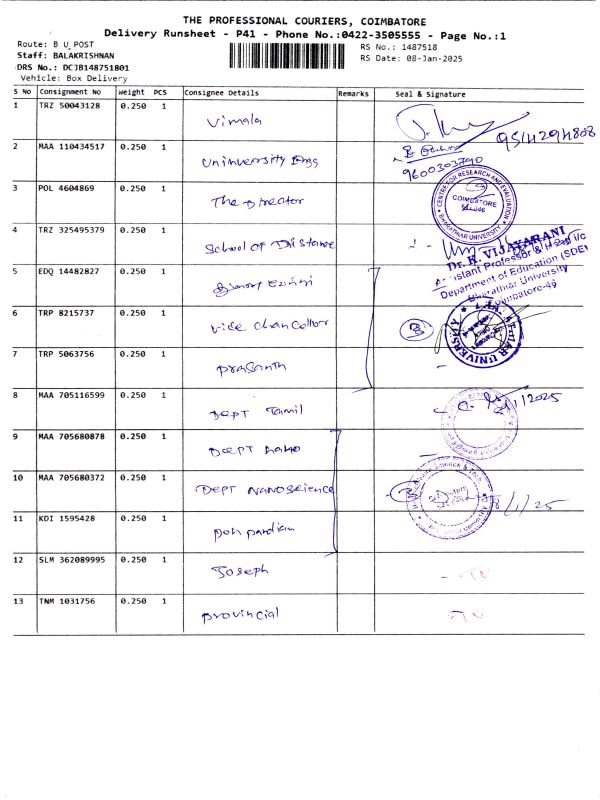 THE PROFESSIONAL COURIERS, COIMBATORE
Delivery Runsheet - P41 - Phone No.:0422-3505555 - Page No.:1
Route: B U_POST
RS No.: 1487518
Staff: BALAKRISHNAN
RS Date: 08-Jan-2025
DRS No.: DCJB148751801
Vehicle: Box Delivery
S No Consignment No Weight PCS Consignee Details Remarks Seal & Signature
1 TRZ 50043128 0.250 1 Vimala
9514294808
2 MAA 110434517 0.250 1 Uninversity Engg
9600303790
3 POL 4604869 0.250 1 The Director
CENTRE FOR RESEARCH AND EVALUATION
COIMBATORE
BHARATHIAR UNIVERSITY
4 TRZ 325495379 0.250 1 School of Distance
Dr. R. VIJAYARANI
Assistant Professor & Head i/c
Department of Education (SDE)
Bharathiar University
Coimbatore-46
5 EDQ 14482827 0.250 1
6 TRP 8215737 0.250 1 Vice Chancellor
7 TRP 5063756 0.250 1 Prasanth
8 MAA 705116599 0.250 1 Dept Tamil
9 MAA 705680878 0.250 1 Dept Nano
10 MAA 705680372 0.250 1 Dept Nanoscience
8/1/25
11 KDI 1595428 0.250 1 Pon pandian
12 SLM 362089995 0.250 1 Joseph
13 TNM 1031756 0.250 1 Provincial